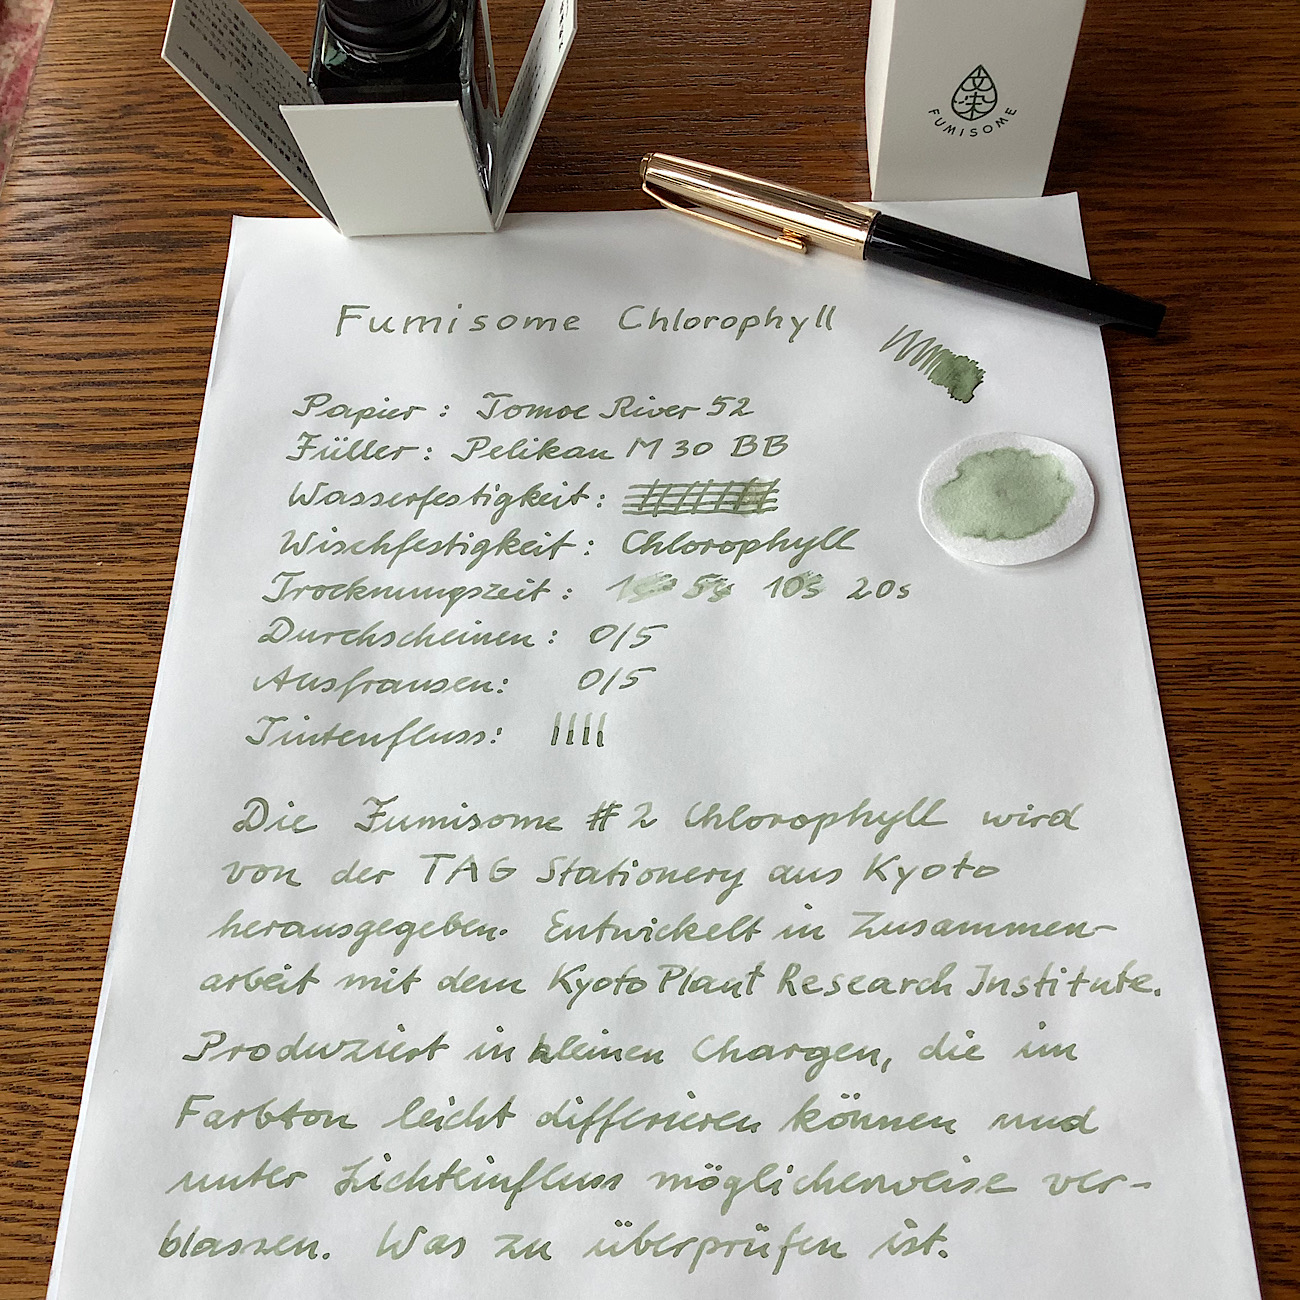 文染
FUMISOME
Fumisome Chlorophyll
Papier : Tomoe River 52
Füller : Pelikan M 30 BB
Wasserfestigkeit :
Wischfestigkeit : Chlorophyll
Trocknungszeit : 1s 5s 10s 20s
Durchscheinen : 0/5
Ausfransen : 0/5
Tintenfluss :
Die Fumisome #2 Chlorophyll wird
von der TAG Stationery aus Kyoto
herausgegeben. Entwickelt in Zusammen-
arbeit mit dem Kyoto Plant Research Institute.
Produziert in kleinen Chargen, die im
Farbton leicht differieren können und
unter Lichteinfluss möglicherweise ver-
blassen. Was zu überprüfen ist.